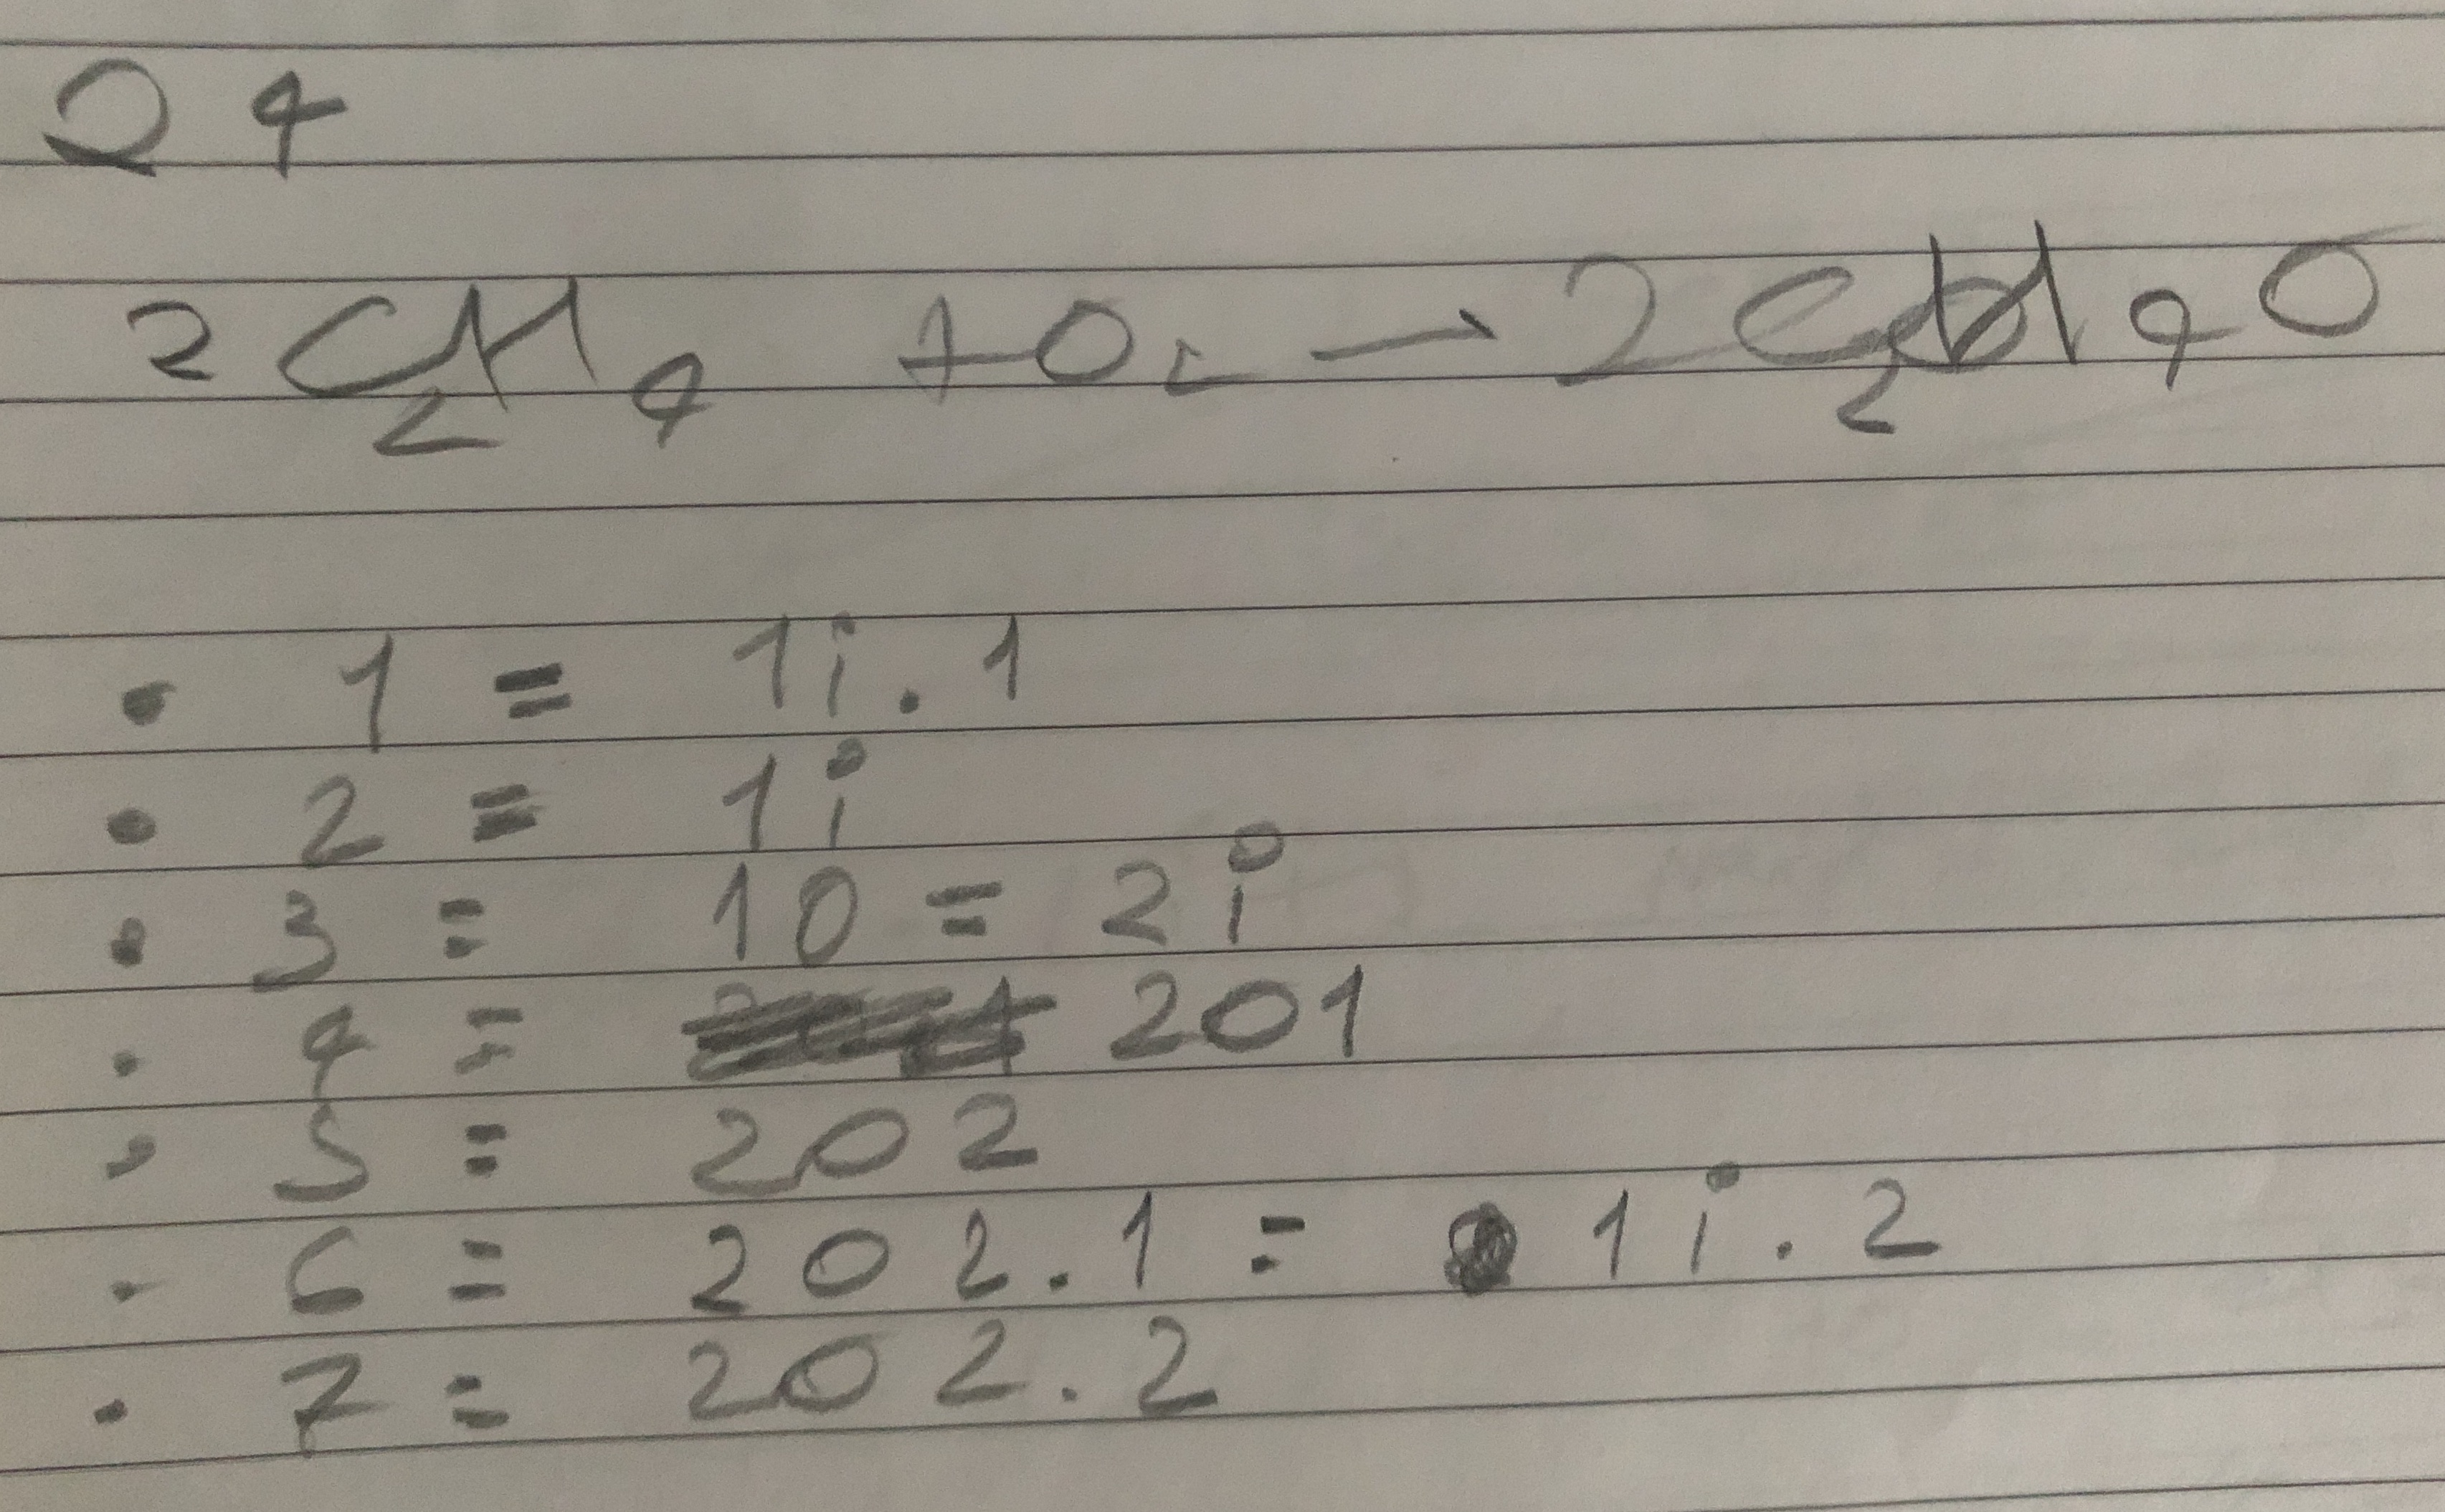 Q4
2C₂H₄ + O₂ → 2C₂H₄O
• 1 = 1i.1
• 2 = 1i
• 3 = 10 = 2i
• 4 = 201
• 5 = 202
• 6 = 202.1 = 1i.2
• 7 = 202.2